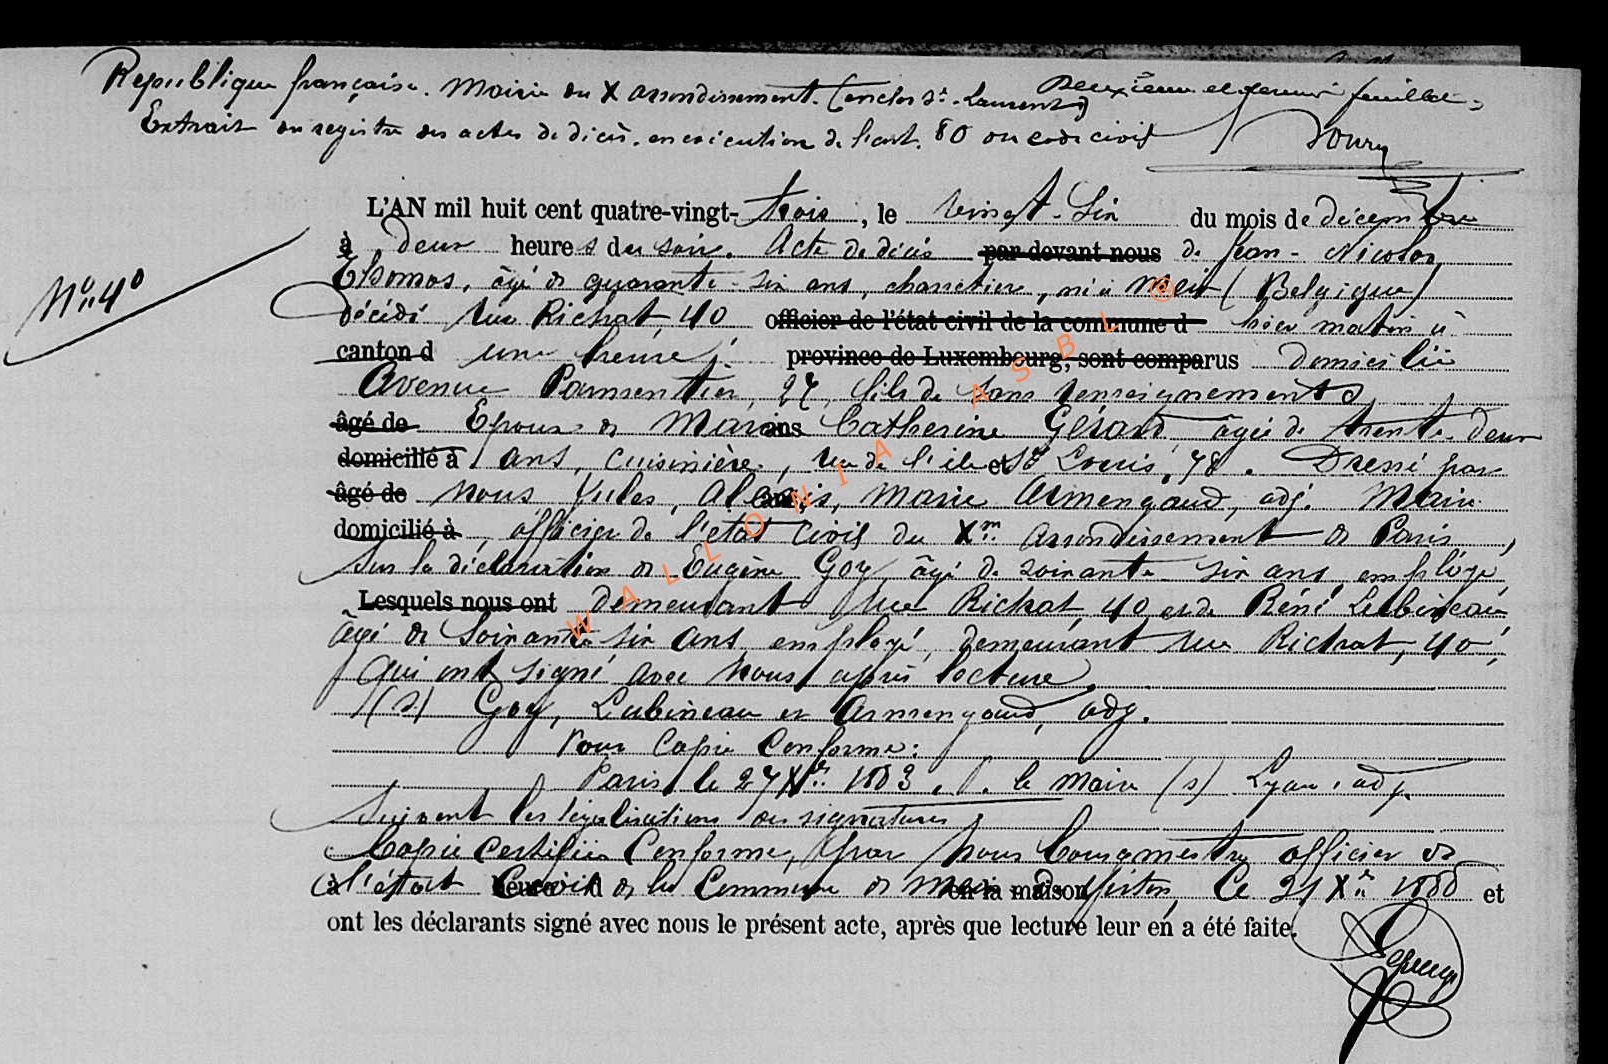 Deuxième et dernier feuillet
République française. Mairie du X arrondissement. (enclos St. Laurent)
Extrait du registre des actes de décès, en exécution de l'art. 80 du code civil
N° 40
L'AN mil huit cent quatre-vingt-trois, le vingt-six du mois de décembre
à deux heures du soir. Acte de décès par devant nous de Jean-Nicolas
Thomas, âgé de quarante-six ans, charretier, né à (Belgique)
décédé rue Richat, 40 officier de l'état civil de la commune d hier matin à
canton d une heure ; province de Luxembourg, sont comparus domicilié
Avenue Parmentier, 27, fils de sans renseignements
âgé de Epoux de Marie ans Catherine Gérard âgée de trente-deux
domicilié à ans, cuisinière, rue de l'ile et St Louis, 78. Dressé par
âgé de nous Jules, Alexis, Marie Armengaud, adj. Maire
domicilié à, officier de l'état civil du Xm arrondissement de Paris,
Sur la déclaration de Eugène Goy, âgé de soixante-six ans, employé
Lesquels nous ont demeurant rue Richat, 40 et de Réné Lubineau
âgé de soixante six ans employé, demeurant rue Richat, 40,
qui ont signé avec nous après lecture.
(s) Goy, Lubineau et Armengaud, adj.
Pour Copie Conforme:
Paris, le 27 Xbre 1883. P. le Maire (s) Lyau, adj.
Suivent les légalisations des signatures
Copie Certifiée Conforme, par Nous Bourgmestre officier de
à l'état heure d civil de la Commune de en la maison Virton, Ce 21 Xbre 1888 et
ont les déclarants signé avec nous le présent acte, après que lecture leur en a été faite.
© WALLONIA ASBL